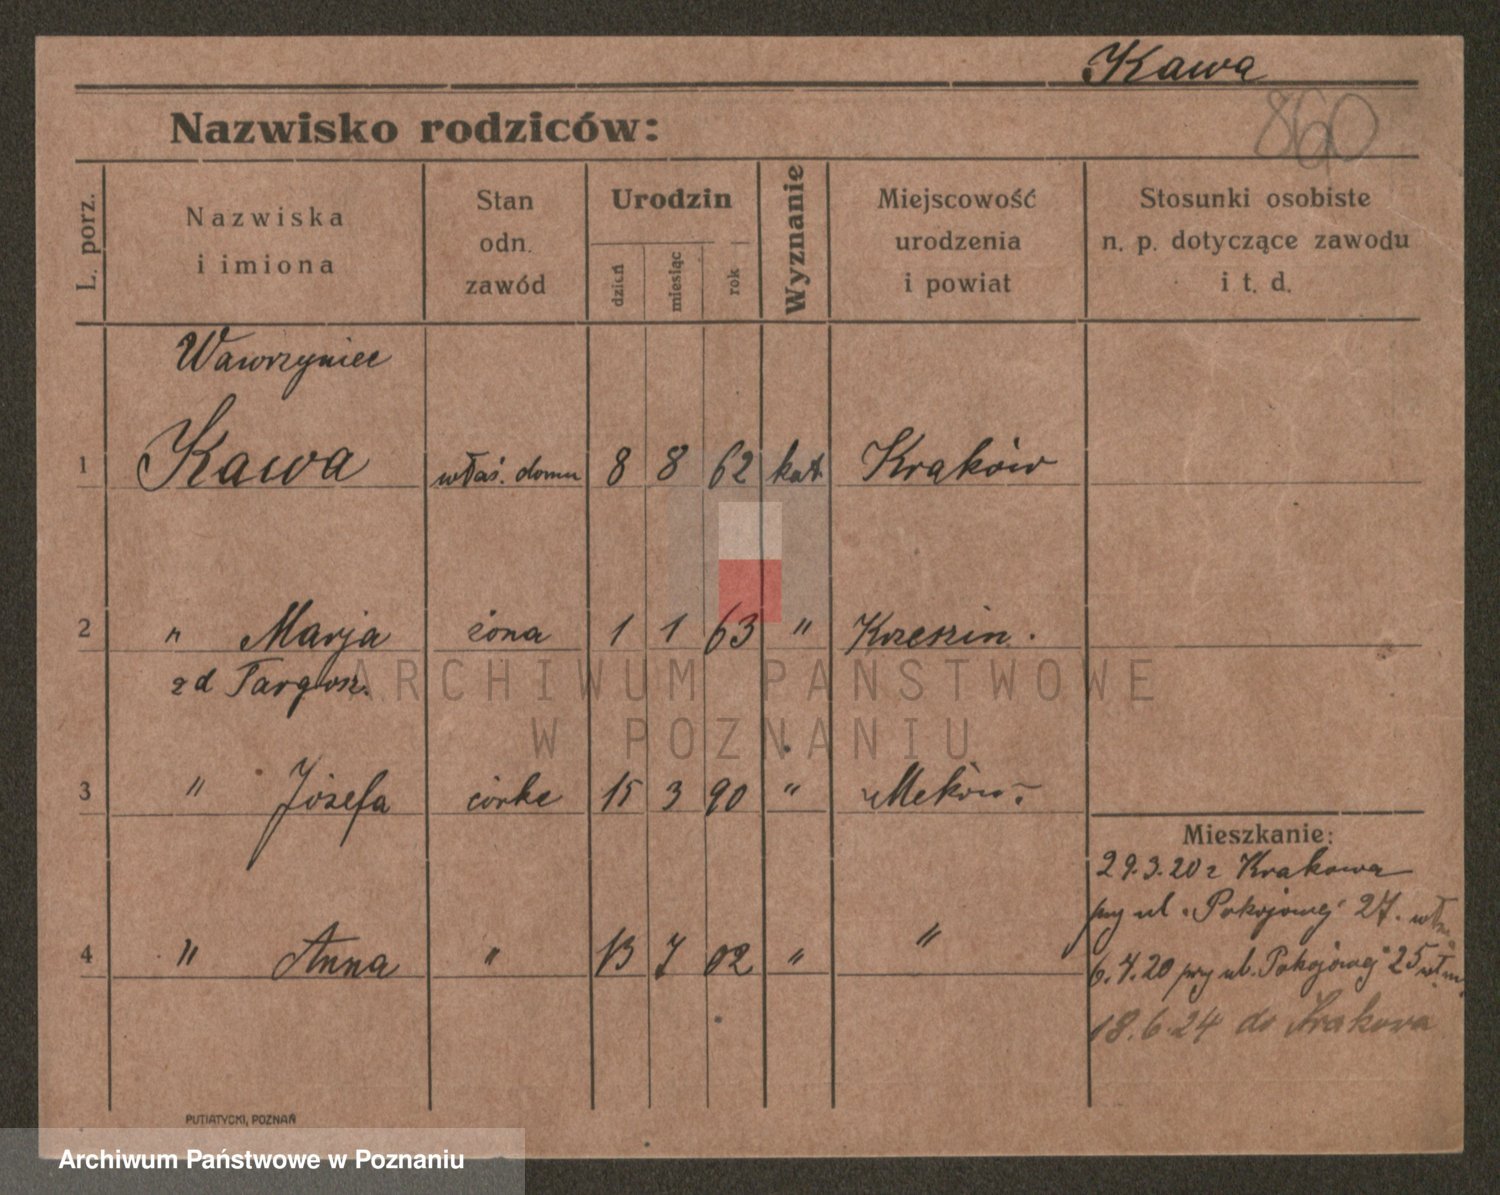 Kawa
860
Nazwisko rodziców:
L. porz.
Nazwiska
i imiona
Stan
odn.
zawód
Urodzin
dzień
miesiąc
rok
Wyznanie
Miejscowość
urodzenia
i powiat
Stosunki osobiste
n. p. dotyczące zawodu
i t. d.
Wawrzyniec
1 Kawa właś. domu 8 8 62 kat Kraków
2 " Marja żona 1 1 63 " Krzeszin.
zd Targosz.
3 " Józefa córka 15 3 90 "
4 " Anna " 13 7 02 " "
Mieszkanie:
29.3.20 z Krakowa
przy ul. "Pokojowej" 27.
6.4.20 przy ul. "Pokojowej" 25
18.6.24 do Krakowa
PUTIATYCKI, POZNAŃ
ARCHIWUM PAŃSTWOWE
W POZNANIU
Archiwum Państwowe w Poznaniu